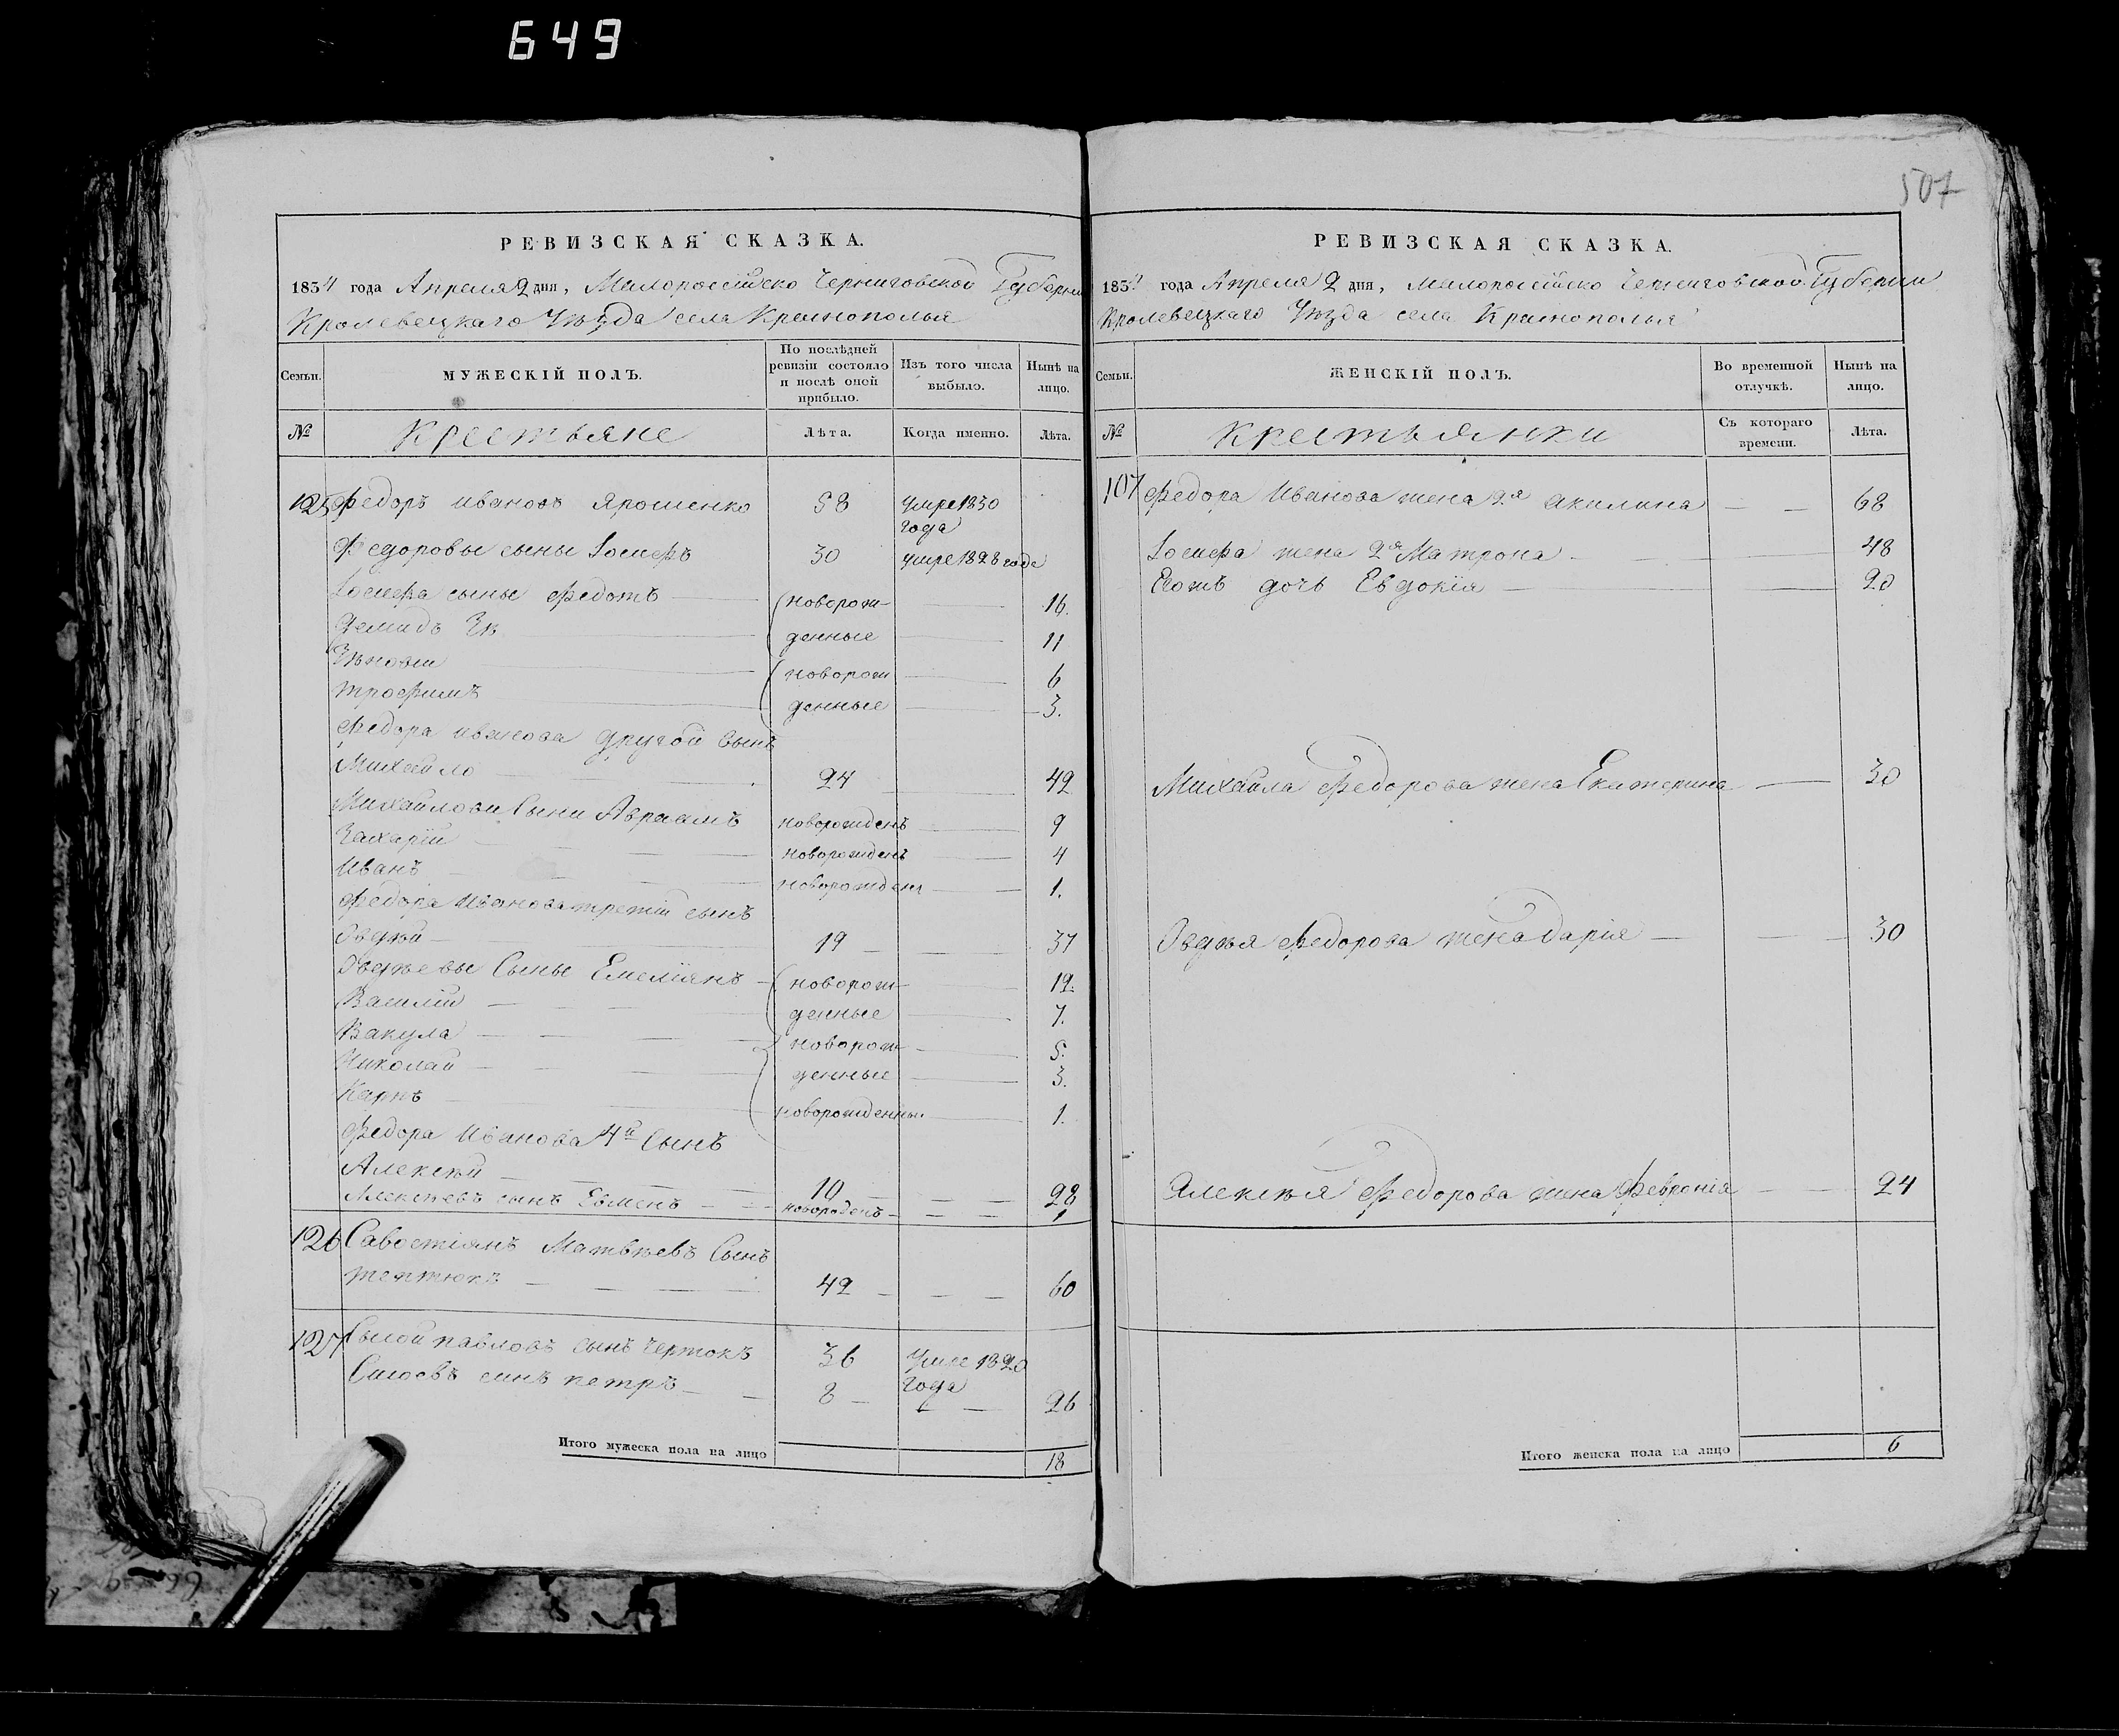 649
507
РЕВИЗСКАЯ СКАЗКА.
1834 года Апреля 2 дня, Малоросiйско Черниговской Губерни
Кролевецкаго Уѣзда села Краснополья
Семьи. МУЖЕСКІЙ ПОЛЪ. По послѣдней ревизіи состояло и послѣ оной прибыло. Изъ того числа выбыло. Нынѣ на лицо.
№ Крестьяне Лѣта. Когда именно. Лѣта.
125 Федоръ Ивановъ Ярошенко 58 умре 1830 года
Федоровы сыны Iосифъ 30 умре 1828 года
Iосифа сыны Федотъ (новорож- 16.
Демидъ денные 11
Зѣновiи (новорож 6
Трофимъ денные 3.
Федора Иванова другой сынъ
Михайло 24 42
Михайлови Сыни Авраамъ новорожденъ 9
Захарiи новорожденъ 4
Иванъ новорожденъ 1.
Федора Иванова третiи сынъ
Овдѣй 19 37
Овдѣевы Сыны Емелiянъ (новорож- 12.
Василiи денные 7.
Вакула новорож 5.
Николай денные 3.
Карпъ новорожденны 1.
Федора Иванова 4й Сынъ
Алексѣй 10 28
Алексѣевъ сынъ Евменъ новороденъ 1
126 Савостiянъ Матвѣевъ Сынъ
42 60
127 Павловъ сынъ Чертокъ 36 Умре 1820 года
сынъ Петръ 8 26
Итого мужеска пола на лицо 18
РЕВИЗСКАЯ СКАЗКА.
1834 года Апреля 2 дня, Малоросiйско Черниговской Губернии
Кролевецкаго Уѣзда села Краснополья
Семьи. ЖЕНСКІЙ ПОЛЪ. Во временной отлучкѣ. Нынѣ на лицо.
№ Крестьянки Съ котораго времени. Лѣта.
107 Федора Иванова жена 2я Акилина 68
Iосифа жена 2я Матрона 48
Егожъ дочь Евдокiя 20
Михайла Федорова жена Екатерина 30
Овдѣя Федорова жена Дарiя 30
Алексѣя Федорова жена Февронiя 24
Итого женска пола на лицо 6